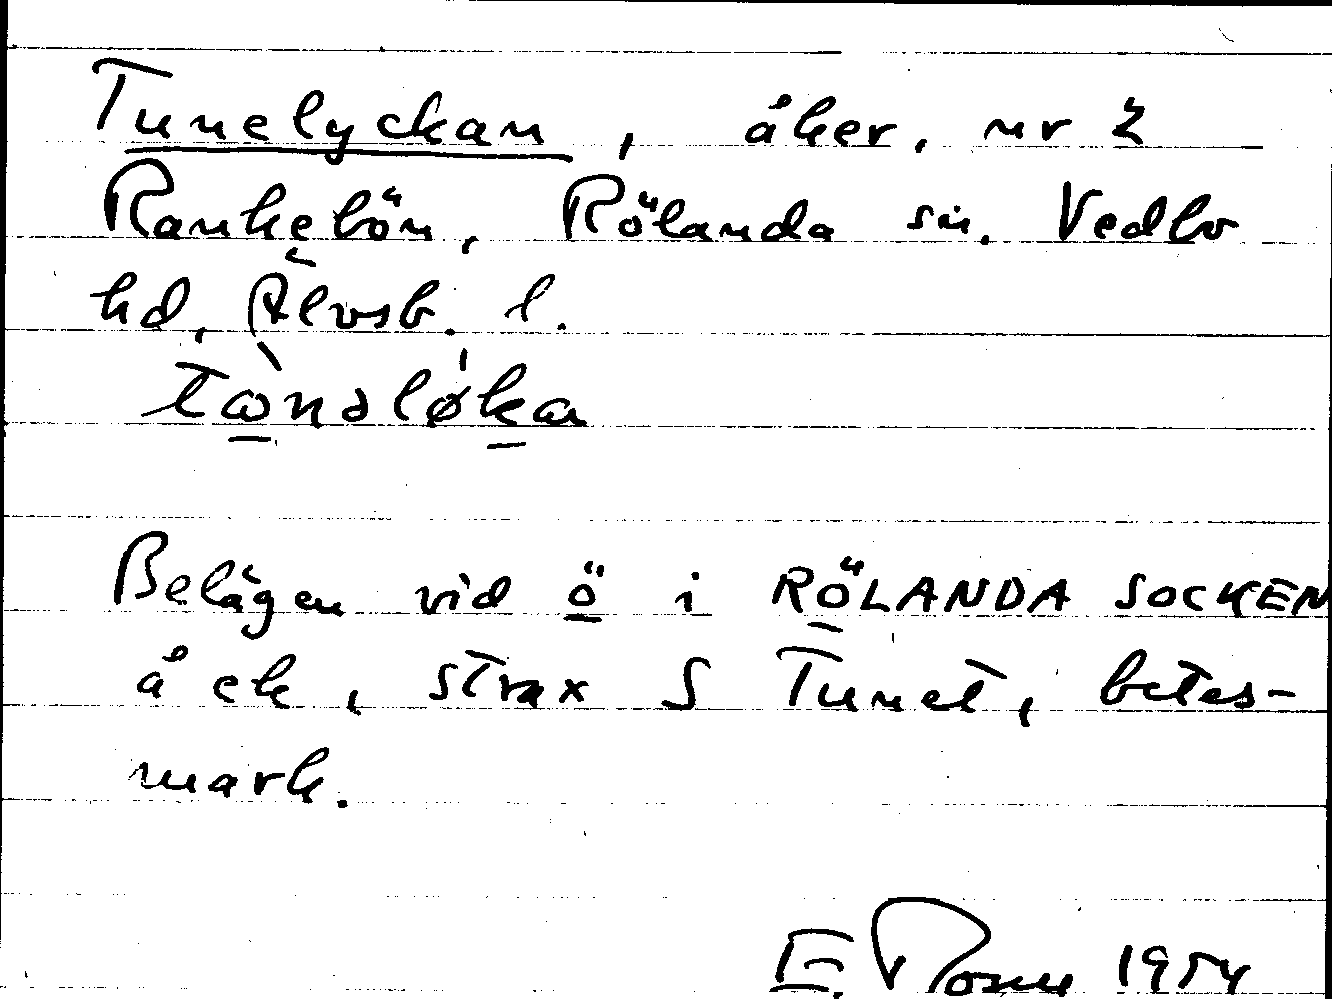 Tunelyckan, åker, nr 2
Rankebön, Rölanda sn. Vedbo
hd, Älvsb. l.
Belägen vid ö i RÖLANDA SOCKEN
å ek, strax S Tunet, betes-
mark.
E. 1954